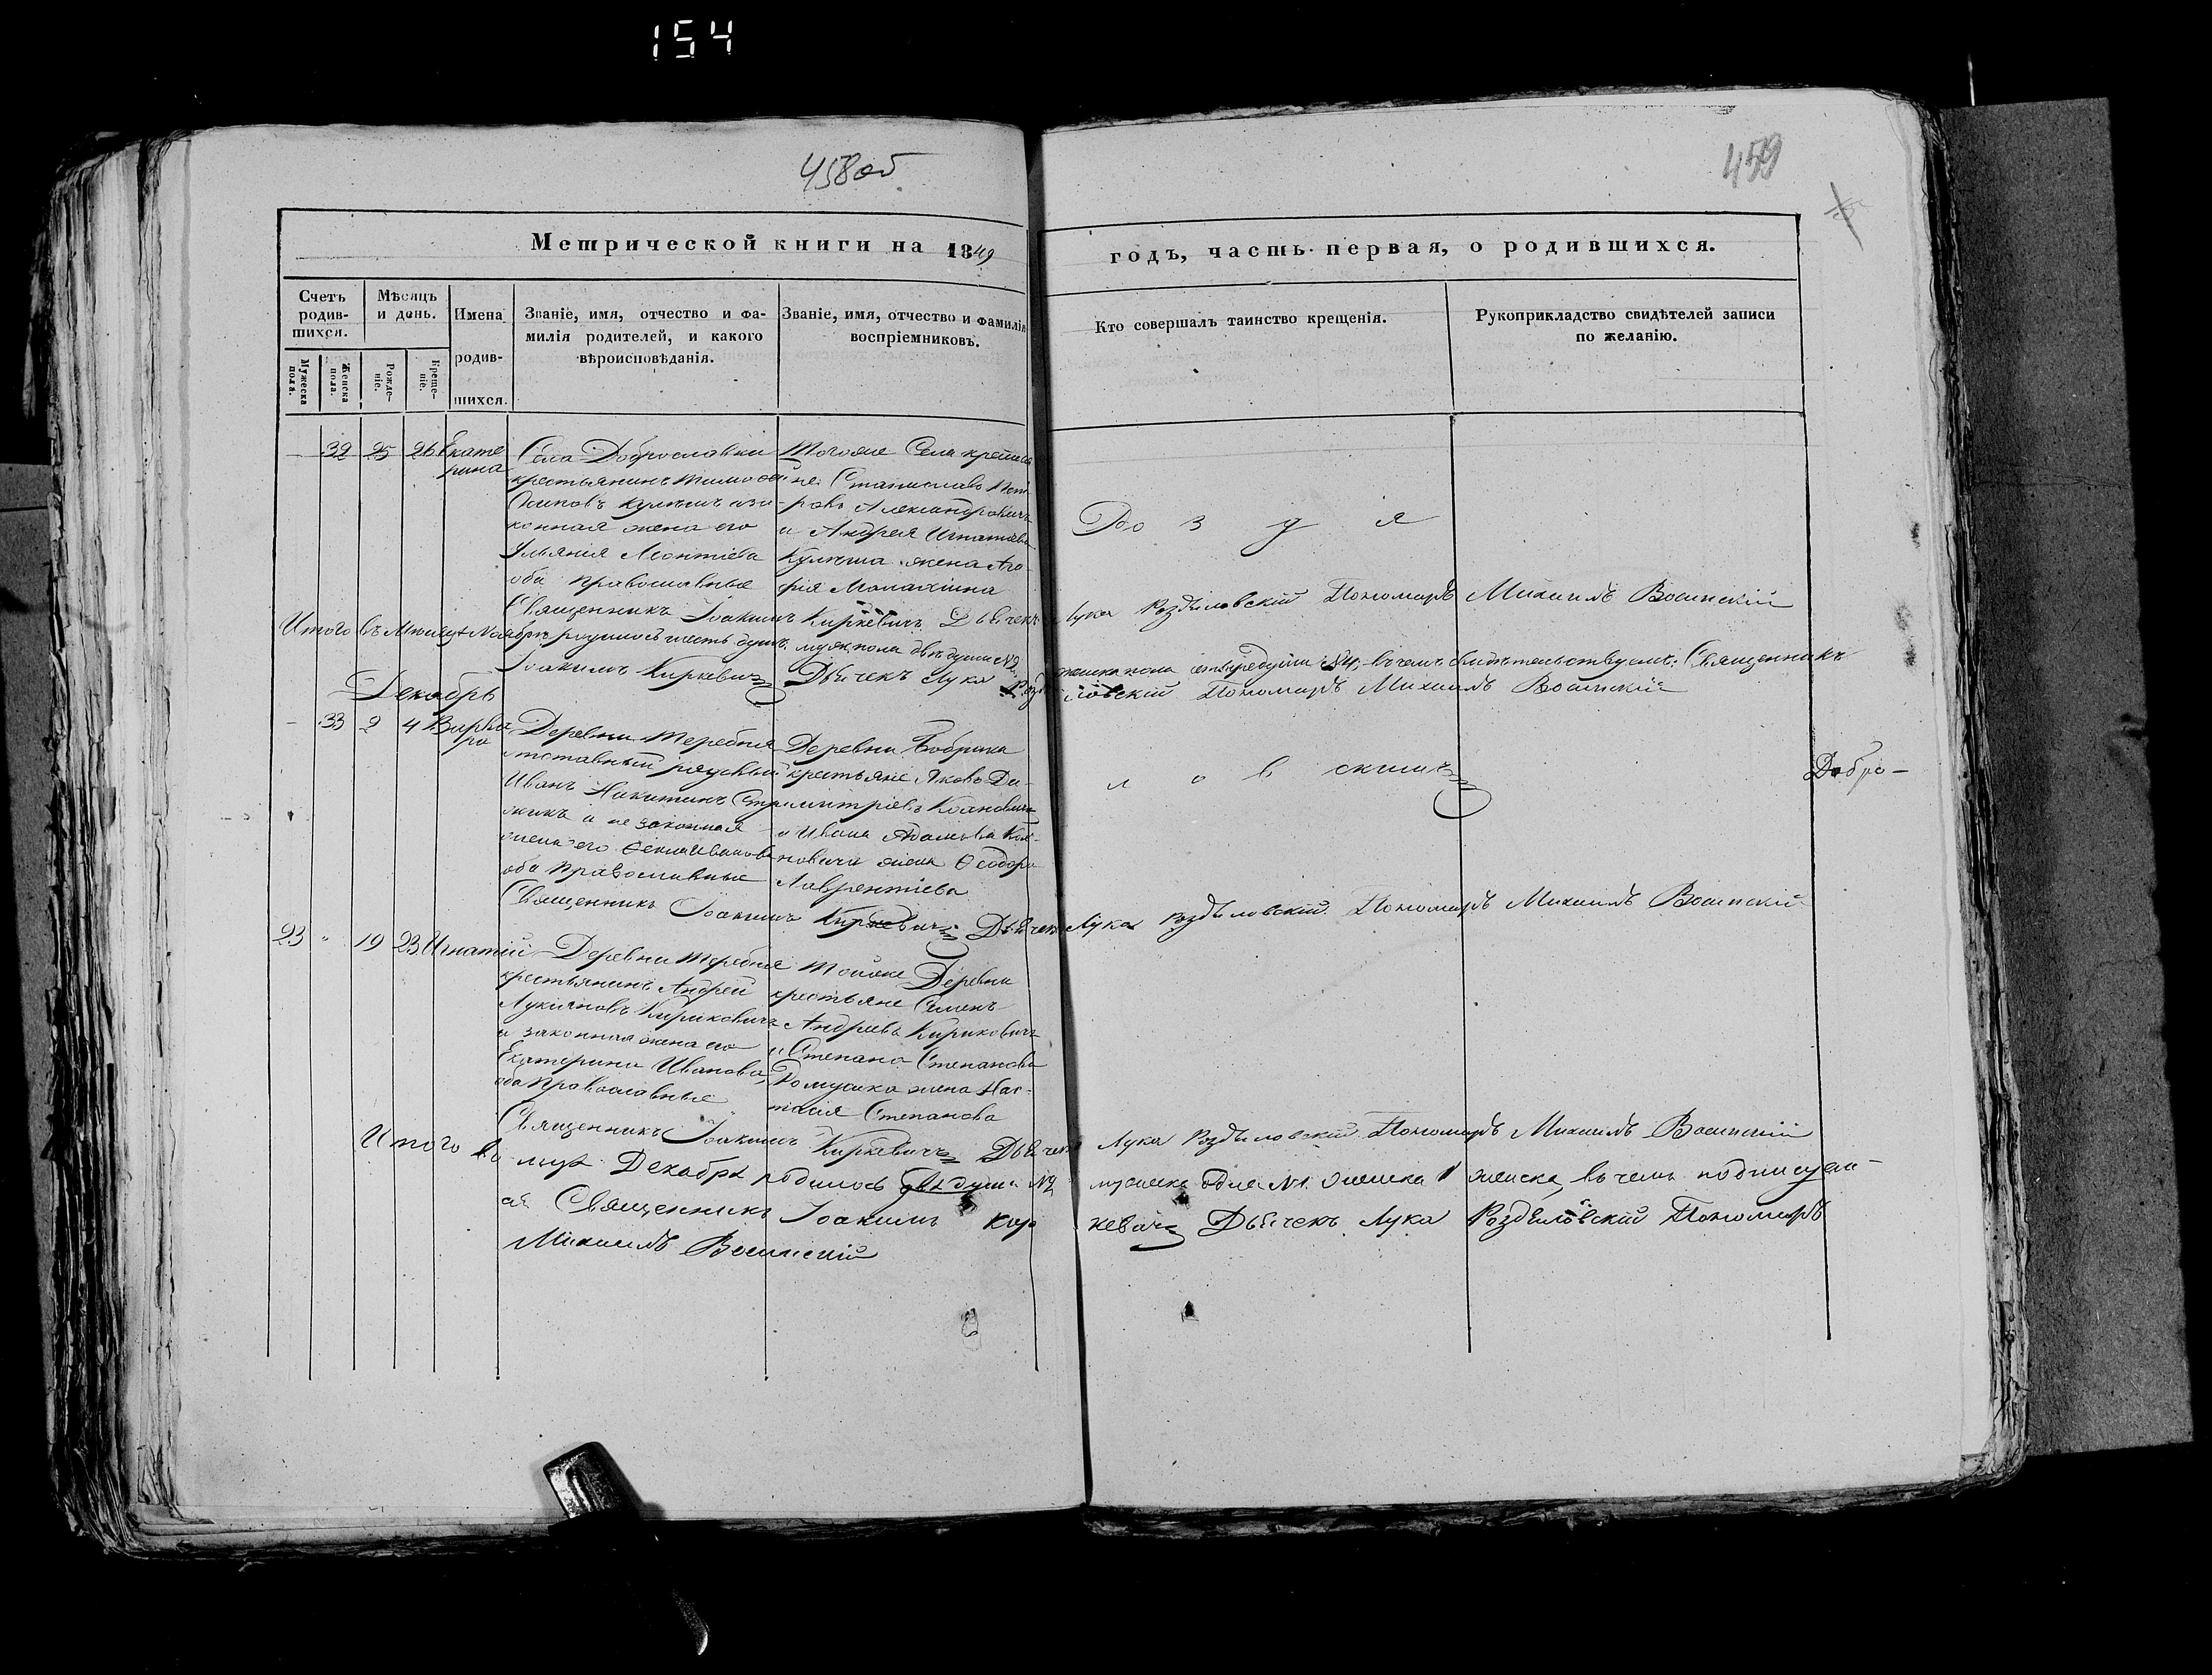 154
458об
459
Метрической книги на 1849
годъ, часть первая, о родившихся.
Счетъ родив-шихся.
Мѣсяцъ и день.
Имена родив-шихся.
Званіе, имя, отчество и фа-
милія родителей, и какого
вѣроисповѣданія.
Званіе, имя, отчество и фамилія
воспріемниковъ.
Кто совершалъ таинство крещенія.
Рукоприкладство свидѣтелей записи
по желанію.
Мужеска пола.
Женска пола.
Рожде-ніе.
Креще-ніе.
32 25 26 Екате
рина
Села Доброславки
крестьянинъ
Осиповъ Кулешъ и за-
конная жена его
Ульянія Леонтіева
оба православные
Тогоже Села крестья
не Станиславъ Пет
ровъ Александровичъ
и Андрея Игнатіева
Кулеша жена Ага-
фія
До з д я
Священникъ Іоакимъ Киркевичъ Дьячекъ Лука Роздяловскій Пономарь Михаилъ Восинскій
Итого въ Мѣсяцѣ Ноябрѣ родилось шесть душъ. муж. пола двѣ души №2, женска пола четыре души №4, въ чемъ свидѣтельствуемъ: Священникъ
Іоакимъ Киркевичъ Дьячекъ Лука Роздяловскій Пономарь Михаилъ Восинскій
Декабрь
33 2 4 Варва
ра
Деревни Теребня
отставный рядовый
Иванъ Никитинъ
и законная
жена его Ѳекла Иванова
оба православные
Деревни Бобрика
крестьяне Яковъ Ди-
митріевъ
и Ивана Адамова Коя-
новича жена Ѳеодора
Лаврентіева
л о в скимъ
Добро-
Священникъ Іоакимъ Киркевичъ Дьячекъ Лука Роздяловскій Пономарь Михаилъ Восинскій
23 " 19 23 Игнатій
Деревни Теребня
крестьянинъ Андрей
Лукіяновъ Кириковичъ
и законная жена его
Екатерина Иванова,
оба православные
Тойже Деревни
крестьяне Семенъ
Андреевъ Кириковичъ
и Степана Степанова
жена Нас-
тасія Степанова
Священникъ Іоакимъ Киркевичъ Дьячекъ Лука Роздяловскій Пономарь Михаилъ Восинскій
Итого во мцѣ Декабрѣ родилось двѣ души №2 мужска одна №1 женска 1 въ чемъ подписуем-
ся Священникъ Іоакимъ Кир кевичъ Дьячекъ Лука Роздяловскій Пономарь
Михаилъ Восинскій